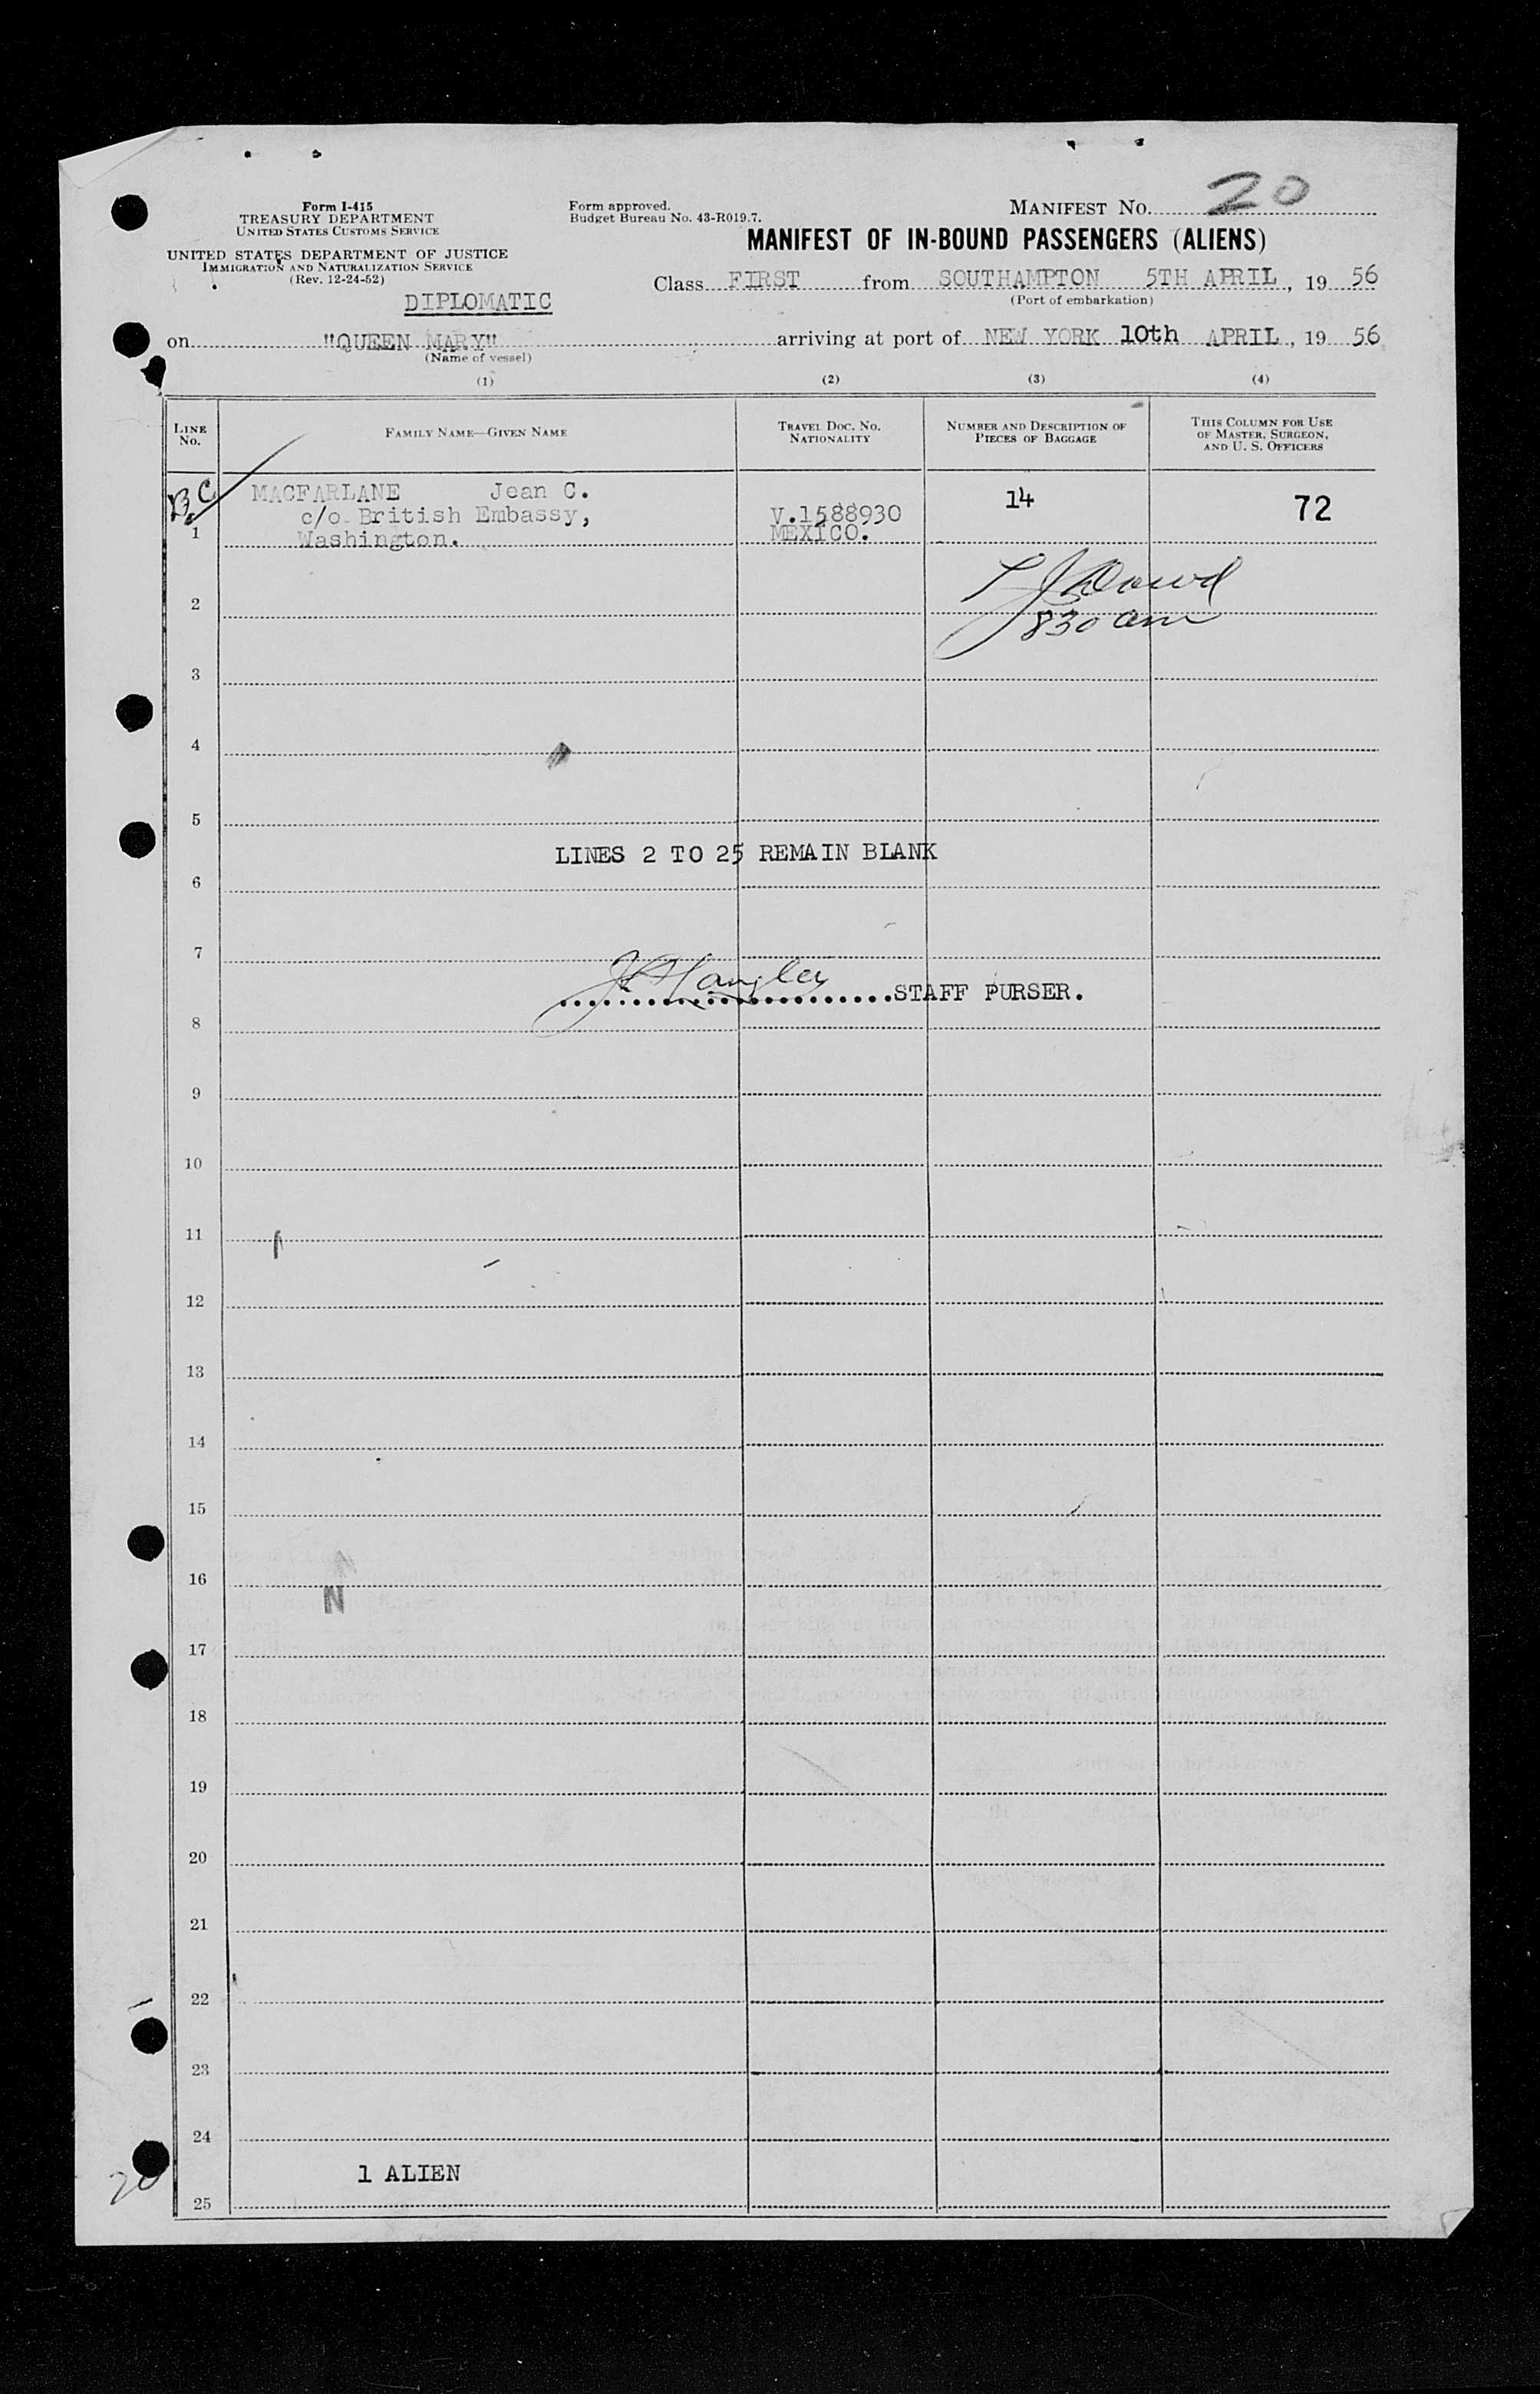 Form I-415
TREASURY DEPARTMENT
UNITED STATES CUSTOMS SERVICE
UNITED STATES DEPARTMENT OF JUSTICE
IMMIGRATION AND NATURALIZATION SERVICE
(Rev. 12-24-52)
Form approved.
Budget Bureau No. 43-R019.7.
MANIFEST NO. 20
MANIFEST OF IN-BOUND PASSENGERS (ALIENS)
Class FIRST from SOUTHAMPTON 5TH APRIL, 19 56
(Port of embarkation)
DIPLOMATIC
on "QUEEN MARY" arriving at port of NEW YORK 10th APRIL, 19 56
(Name of vessel)
(1) (2) (3) (4)
LINE No. FAMILY NAME—GIVEN NAME TRAVEL DOC. NO. NATIONALITY NUMBER AND DESCRIPTION OF PIECES OF BAGGAGE THIS COLUMN FOR USE OF MASTER, SURGEON, AND U. S. OFFICERS
MACFARLANE Jean C. 14 72
c/o British Embassy, V.1588930
1 Washington. MEXICO.
2
830 am
3
4
5
LINES 2 TO 25 REMAIN BLANK
6
7
STAFF PURSER.
8
9
10
11
12
13
14
15
16
N
17
18
19
20
21
22
23
24
1 ALIEN
20
25